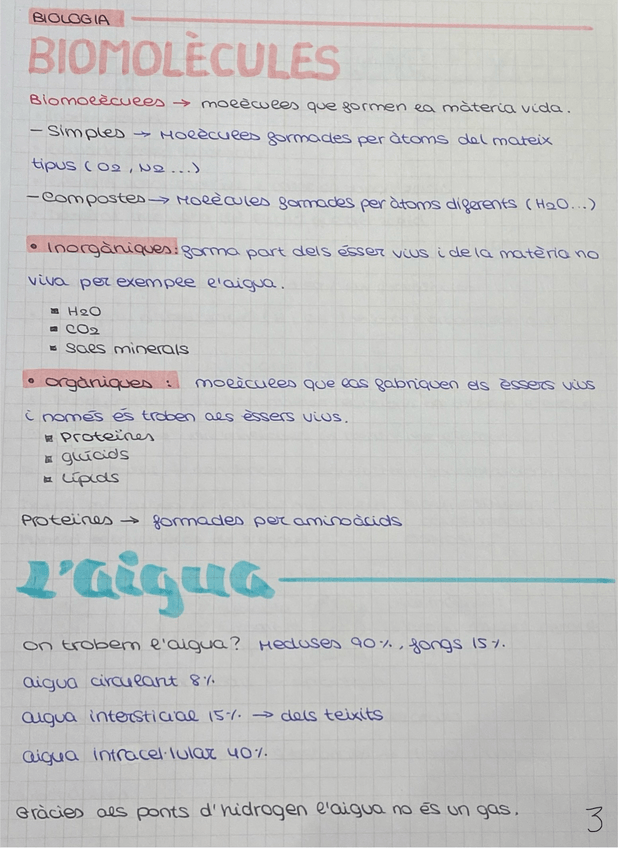 BIOLOGIA
BIOMOLÈCULES
Biomolècules → molècules que formen la màteria vida.
- Simples → Molècules formades per àtoms del mateix
tipus (O2, N2...)
- Compostes → Molècules formades per àtoms diferents (H2O...)
• Inorgàniques: forma part dels ésser vius i de la matèria no
viva per exemple l'aigua.
▪ H2O
▪ CO2
▪ Sals minerals
• orgàniques : molècules que las fabriquen els èssers vius
i només és troben als èssers vius.
▪ Proteïnes
▪ glúcids
▪ Lípids
Proteïnes → formades per aminoàcids
L'aigua
On trobem l'aigua? Meduses 90%, fongs 15%.
aigua circulant 8%
aigua intersticial 15% → dels teixits
aigua intracel·lular 40%.
Gràcies als ponts d'hidrogen l'aigua no és un gas.
3